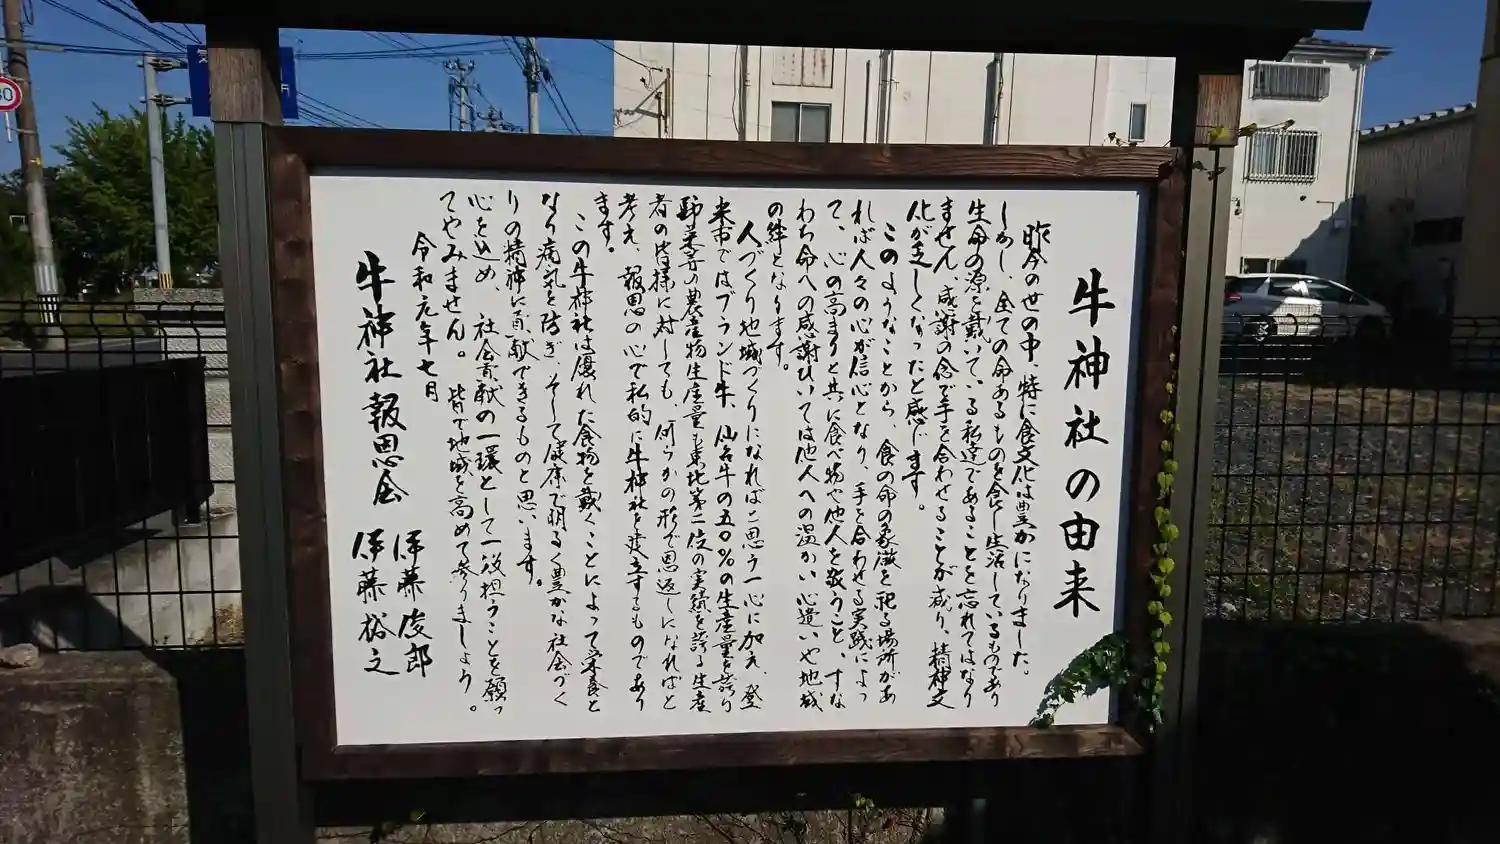 牛神社の由来
昨今の世の中、特に食文化は豊かになりました。
しかし、全ての命あるものを食し生活しているものであり
生命の源を戴いている私達であることを忘れてはなり
ません。感謝の念で手を合わせることが減り、精神文
化が乏しくなったと感じます。
このようなことから、食の命の象徴を祀る場所があ
れば人々の心が信心となり、手を合わせる実践によっ
て、心の高まりと共に食べ物や他人を敬うこと、すな
わち命への感謝ひいては他人への温かい心遣いや地域
の絆となります。
人づくり地域づくりになればと思う一心に加え、登
米市ではブランド牛、仙台牛の五〇%の生産量を誇り
野菜等の農産物生産量も東北第二位の実績を誇る生産
者の皆様に対しても、何らかの形で恩返しになればと
考え、報恩の心で私的に牛神社を建立するものであり
ます。
この牛神社は優れた食物を戴くことによって栄養と
なり病気を防ぎ、そして健康で明るく豊かな社会づく
りの精神に貢献できるものと思います。
心を込め、社会貢献の一環として一役担うことを願っ
てやみません。皆で地域を高めて参りましょう。
令和元年七月
牛神社報恩会 伊藤俊郎
伊藤裕之
30